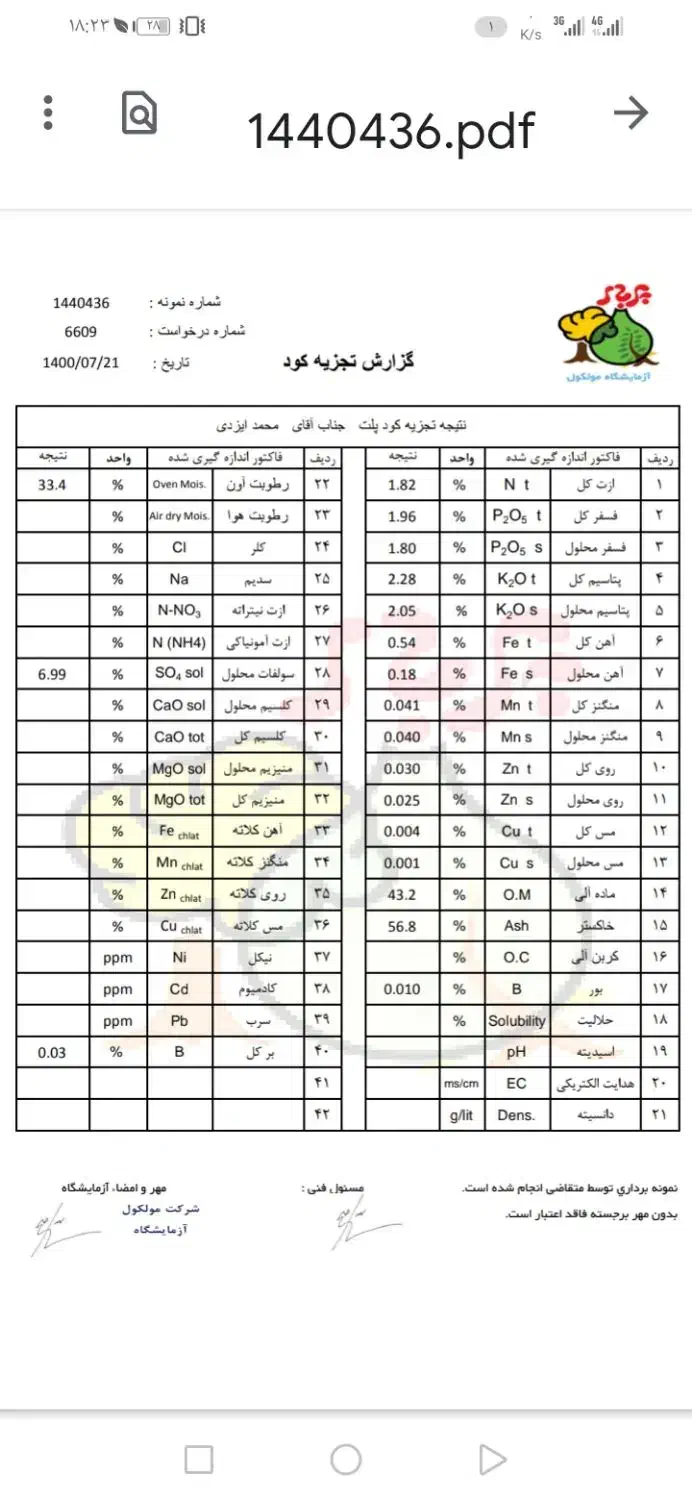 ۱۸:۲۳ ۲۸ ۱ K/s 3G 4G
1440436.pdf
شماره نمونه : 1440436
شماره درخواست : 6609
تاریخ : 1400/07/21
گزارش تجزیه کود
آزمایشگاه مولکول
نتیجه تجزیه کود پلت جناب آقای محمد ایزدی
ردیف فاکتور اندازه گیری شده واحد نتیجه ردیف فاکتور اندازه گیری شده واحد نتیجه
۱ ازت کل N t % 1.82 ۲۲ رطوبت آون Oven Mois. % 33.4
۲ فسفر کل P₂O₅ t % 1.96 ۲۳ رطوبت هوا Air dry Mois. %
۳ فسفر محلول P₂O₅ s % 1.80 ۲۴ کلر Cl %
۴ پتاسیم کل K₂O t % 2.28 ۲۵ سدیم Na %
۵ پتاسیم محلول K₂O s % 2.05 ۲۶ ازت نیتراته N-NO₃ %
۶ آهن کل Fe t % 0.54 ۲۷ ازت آمونیاکی N (NH4) %
۷ آهن محلول Fe s % 0.18 ۲۸ سولفات محلول SO₄ sol % 6.99
۸ منگنز کل Mn t % 0.041 ۲۹ کلسیم محلول CaO sol %
۹ منگنز محلول Mn s % 0.040 ۳۰ کلسیم کل CaO tot %
۱۰ روی کل Zn t % 0.030 ۳۱ منیزیم محلول MgO sol %
۱۱ روی محلول Zn s % 0.025 ۳۲ منیزیم کل MgO tot %
۱۲ مس کل Cu t % 0.004 ۳۳ آهن کلاته Fe chlat %
۱۳ مس محلول Cu s % 0.001 ۳۴ منگنز کلاته Mn chlat %
۱۴ ماده آلی O.M % 43.2 ۳۵ روی کلاته Zn chlat %
۱۵ خاکستر Ash % 56.8 ۳۶ مس کلاته Cu chlat %
۱۶ کربن آلی O.C % ۳۷ نیکل Ni ppm
۱۷ بور B % 0.010 ۳۸ کادمیوم Cd ppm
۱۸ حلالیت Solubility % ۳۹ سرب Pb ppm
۱۹ اسیدیته pH ۴۰ بر کل B % 0.03
۲۰ هدایت الکتریکی EC ms/cm ۴۱
۲۱ دانسیته Dens. g/lit ۴۲
نمونه برداری توسط متقاضی انجام شده است. مسئول فنی : مهر و امضاء آزمایشگاه
بدون مهر برجسته فاقد اعتبار است. شرکت مولکول
آزمایشگاه